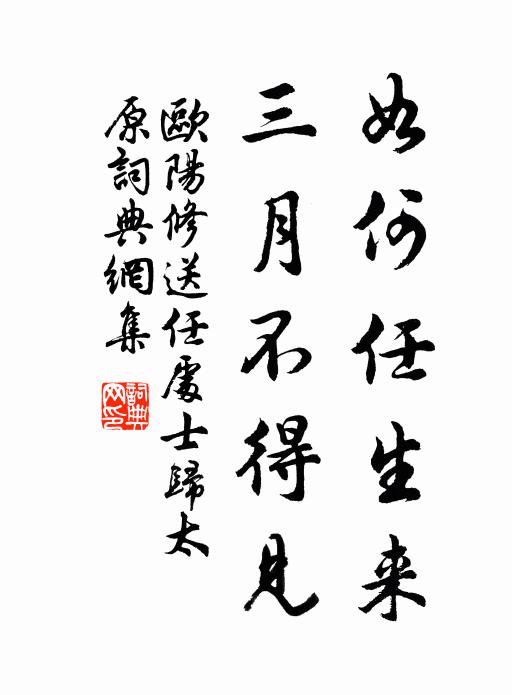 如何任生来
三月不得見
歐陽修送任處士歸太
原詞典網集
詞典
网印